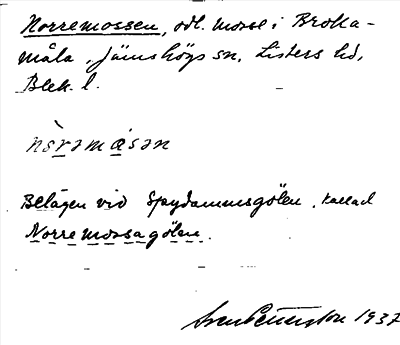 Norremossen, odl. mosse i Brokka-
måla, Jämshögs sn, Listers hd,
Blek. l.
nòrəmåsən
Belägen vid Spydammsgölen, kallad
Norremossagölen.
Sven Petersson 1937